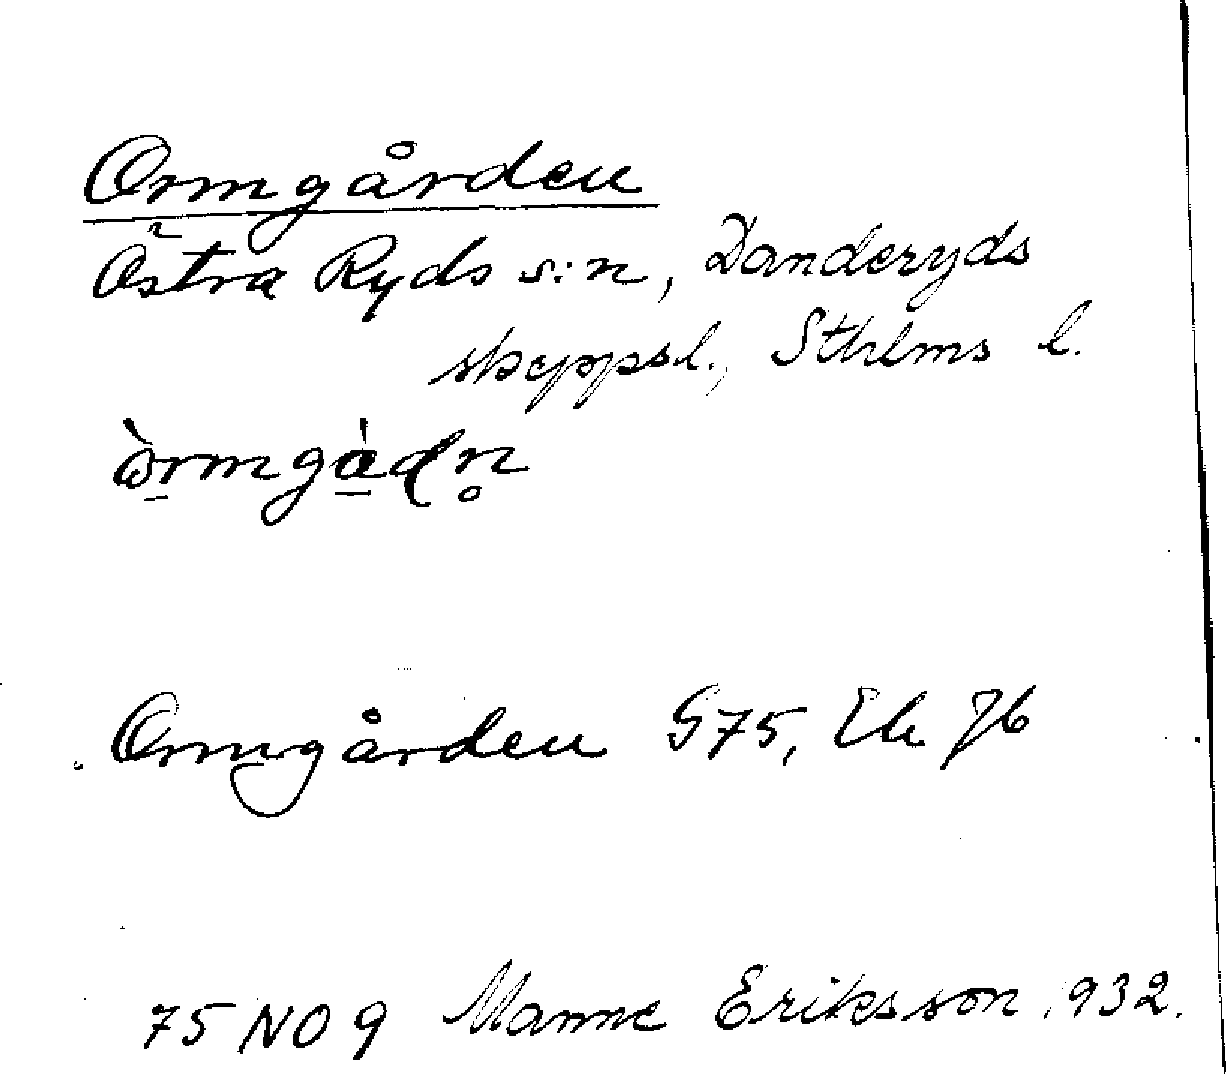 Ormgården
Östra Ryds s:n, Danderyds
skeppsl., Sthlms l.
Ormgården G75, Ek 76
75 NO 9 Manne Eriksson 1932.